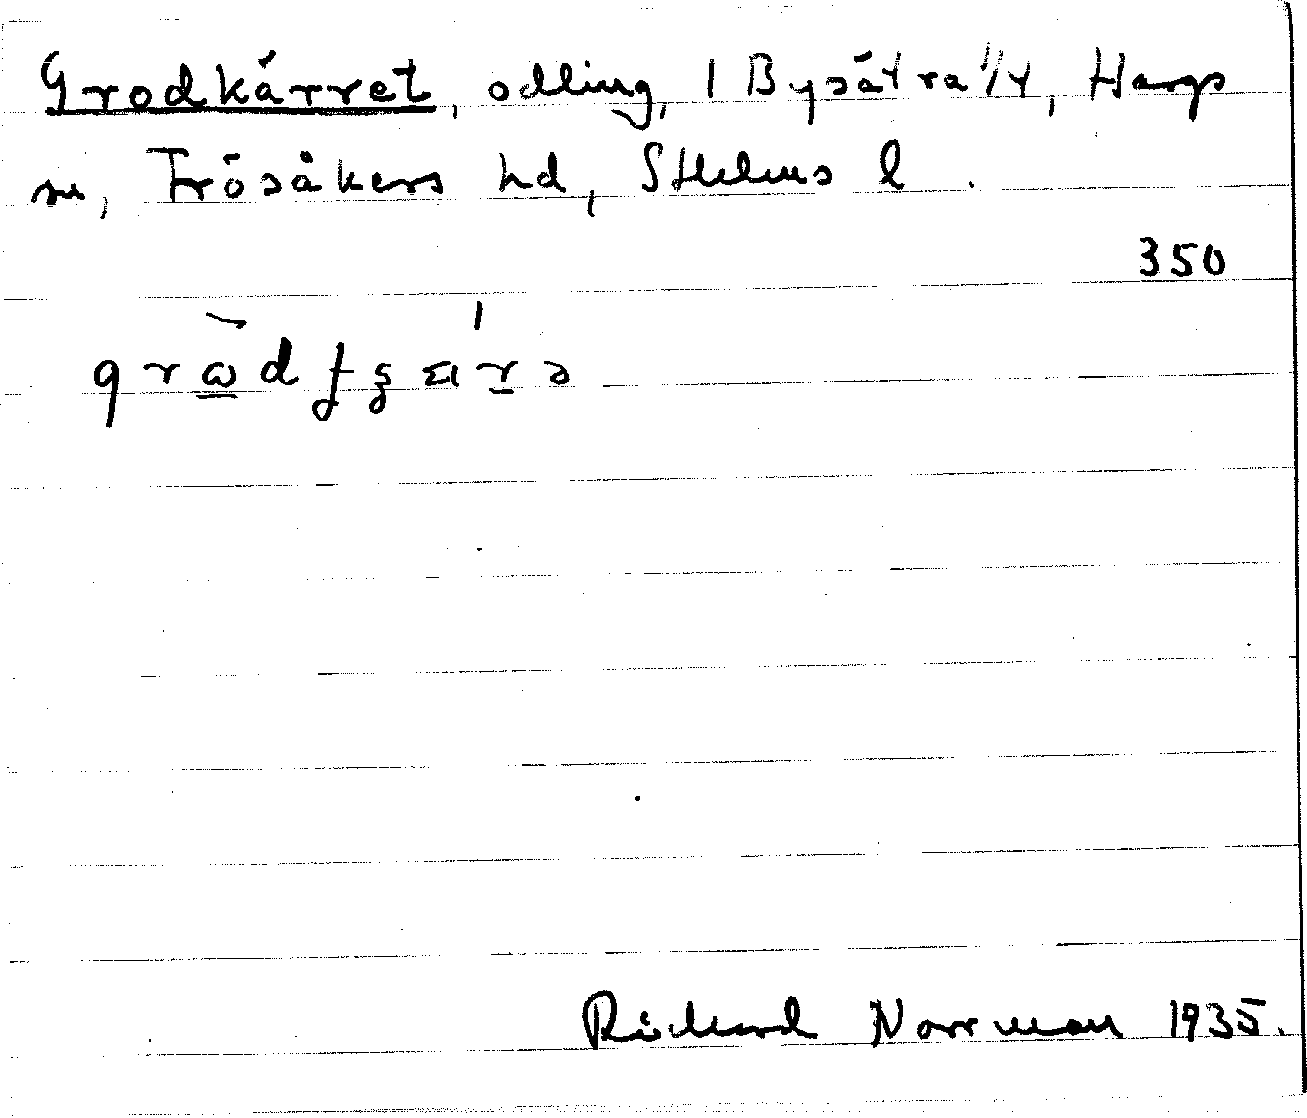 Grodkärret, odling, 1 Bysätra 1/4, Hargs
sn, Frösåkers hd, Sthlms l.
350
Rickard Norrman 1935.